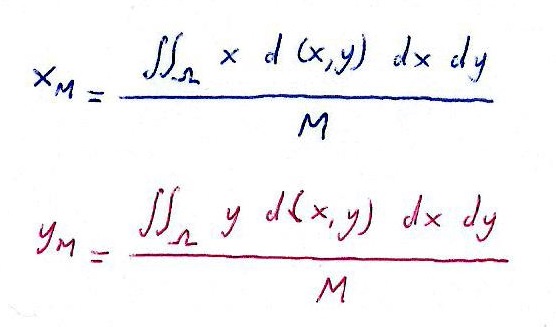 x_M = \frac{\iint_Ω x d(x,y) dx dy}{M}
y_M = \frac{\iint_Ω y d(x,y) dx dy}{M}